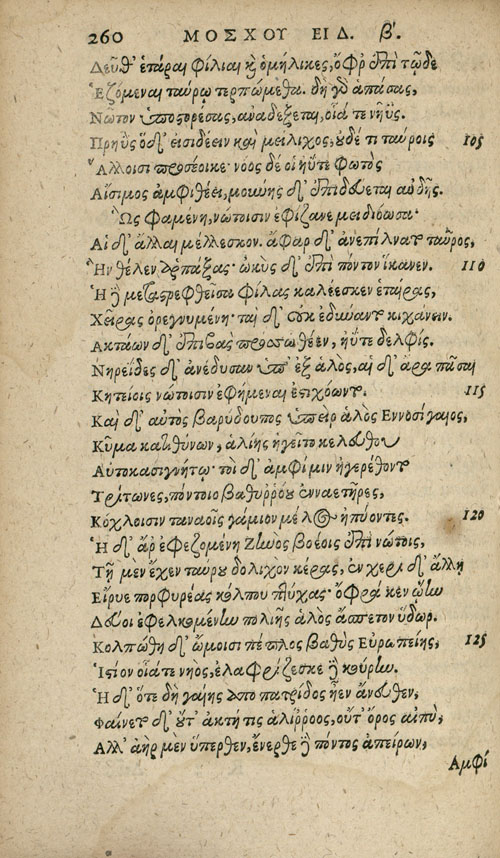 260 ΜΟΣΧΟΥ ΕΙΔ. β΄.
Δεῦθ' ἑτάραι φίλιαι καὶ ὁμήλικες, ὄφρ' ἐπὶ τῷδε
Ἑζόμεναι ταύρῳ τερπώμεθα. δὴ γὰρ ἁπάσας,
Νῶτον ὑποστορέσας, ἀναδέξεται, οἷά τε νηῦς.
Πρηῢς ὅδ' εἰσιδέειν καὶ μείλιχος, οὐδέ τι ταύροις 105
Ἄλλοισι προσέοικε· νόος δέ οἱ ἠΰτε φωτὸς
Αἴσιμος ἀμφιθέει, μούνης δ' ἐπιδεύεται αὐδῆς.
Ὣς φαμένη, νώτοισιν ἐφίζανε μειδιόωσα·
Αἱ δ' ἄλλαι μέλλεσκον. ἄφαρ δ' ἀνεπίλνατο ταῦρος,
Ἣν θέλεν ἁρπάξας· ὠκὺς δ' ἐπὶ πόντον ἵκανεν. 110
Ἡ δὲ μεταστρεφθεῖσα φίλας καλέεσκεν ἑταίρας,
Χεῖρας ὀρεγνυμένη· ταὶ δ' οὐκ ἐδύναντο κιχάνειν.
Ἀκτάων δ' ἐπιβὰς πρόσω θέεν, ἠΰτε δελφίς.
Νηρεΐδες δ' ἀνέδυσαν ὑπ' ἐξ ἁλὸς, αἱ δ' ἄρα πᾶσαι
Κητείοις νώτοισιν ἐφήμεναι ἐστιχόωντο. 115
Καὶ δ' αὐτὸς βαρύδουπος ὑπεὶρ ἁλὸς Ἐννοσίγαιος,
Κῦμα κατιθύνων, ἁλίης ἡγεῖτο κελεύθου
Αὐτοκασιγνήτῳ· τοὶ δ' ἀμφί μιν ἠγερέθοντο
Τρίτωνες, πόντοιο βαθυῤῥόου ἐνναετῆρες,
Κόχλοισιν ταναοῖς γάμιον μέλος ἠπύοντες. 120
Ἡ δ' ἄρ' ἐφεζομένη Ζηνὸς βοέοις ἐπὶ νώτοις,
Τῇ μὲν ἔχεν ταύρου δολιχὸν κέρας, ἐν χερὶ δ' ἄλλῃ
Εἴρυε πορφυρέας κόλπου πτύχας· ὄφρά κεν
Δεύοι ἐφελκομένην πολιῆς ἁλὸς ἄσπετον ὕδωρ.
Κολπώθη δ' ὤμοισι πέπλος βαθὺς Εὐρωπείης, 125
Ἱστίον οἷά τε νηὸς, ἐλαφρίζεσκε δὲ κούρην.
Ἡ δ' ὅτε δὴ γαίης ἀπὸ πατρίδος ἦεν ἄνευθεν,
Φαίνετο δ' οὔτ' ἀκτή τις ἁλίῤῥοος, οὔτ' ὄρος αἰπὺ,
Ἀλλ' ἀὴρ μὲν ὕπερθεν, ἔνερθε δὲ πόντος ἀπείρων,
Ἀμφὶ